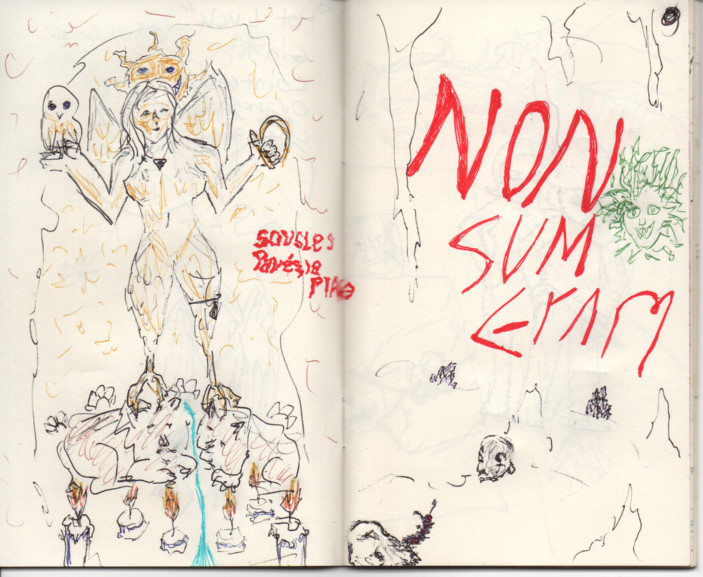 SOUS LES
Pavés, la
PlAge
NON
SUM
ERAM